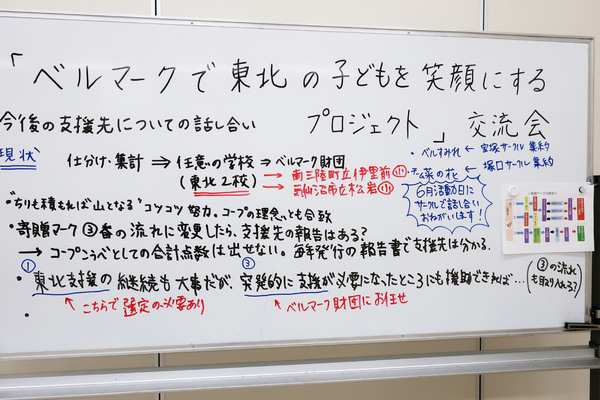 「ベルマークで東北の子どもを笑顔にする
プロジェクト」交流会
今後の支援先についての話し合い
現状
仕分け・集計 ⇒ 任意の学校 ⇒ ベルマーク財団
(東北2校)
→ 南三陸町立伊里前小
→ 気仙沼市立松岩小
・ベルすみれ ← 宝塚サークル集約
菜の花 ← 塚口サークル集約
6月活動日に
サークルで話し合い
おねがいします!
・"ちりも積もれば山となる" コツコツ努力。コープの理念とも合致
・寄贈マーク③番の流れに変更したら、支援先の報告はある?
→ コープこうべとしての合計点数は出せない。毎年発行の報告書で支援先は分かる。
① ③
・東北支援の継続も大事だが、突発的に支援が必要になったところにも援助できれば…(③の流れも取り入れる?)
↖ こちらで選定の必要あり
↖ ベルマーク財団にお任せ